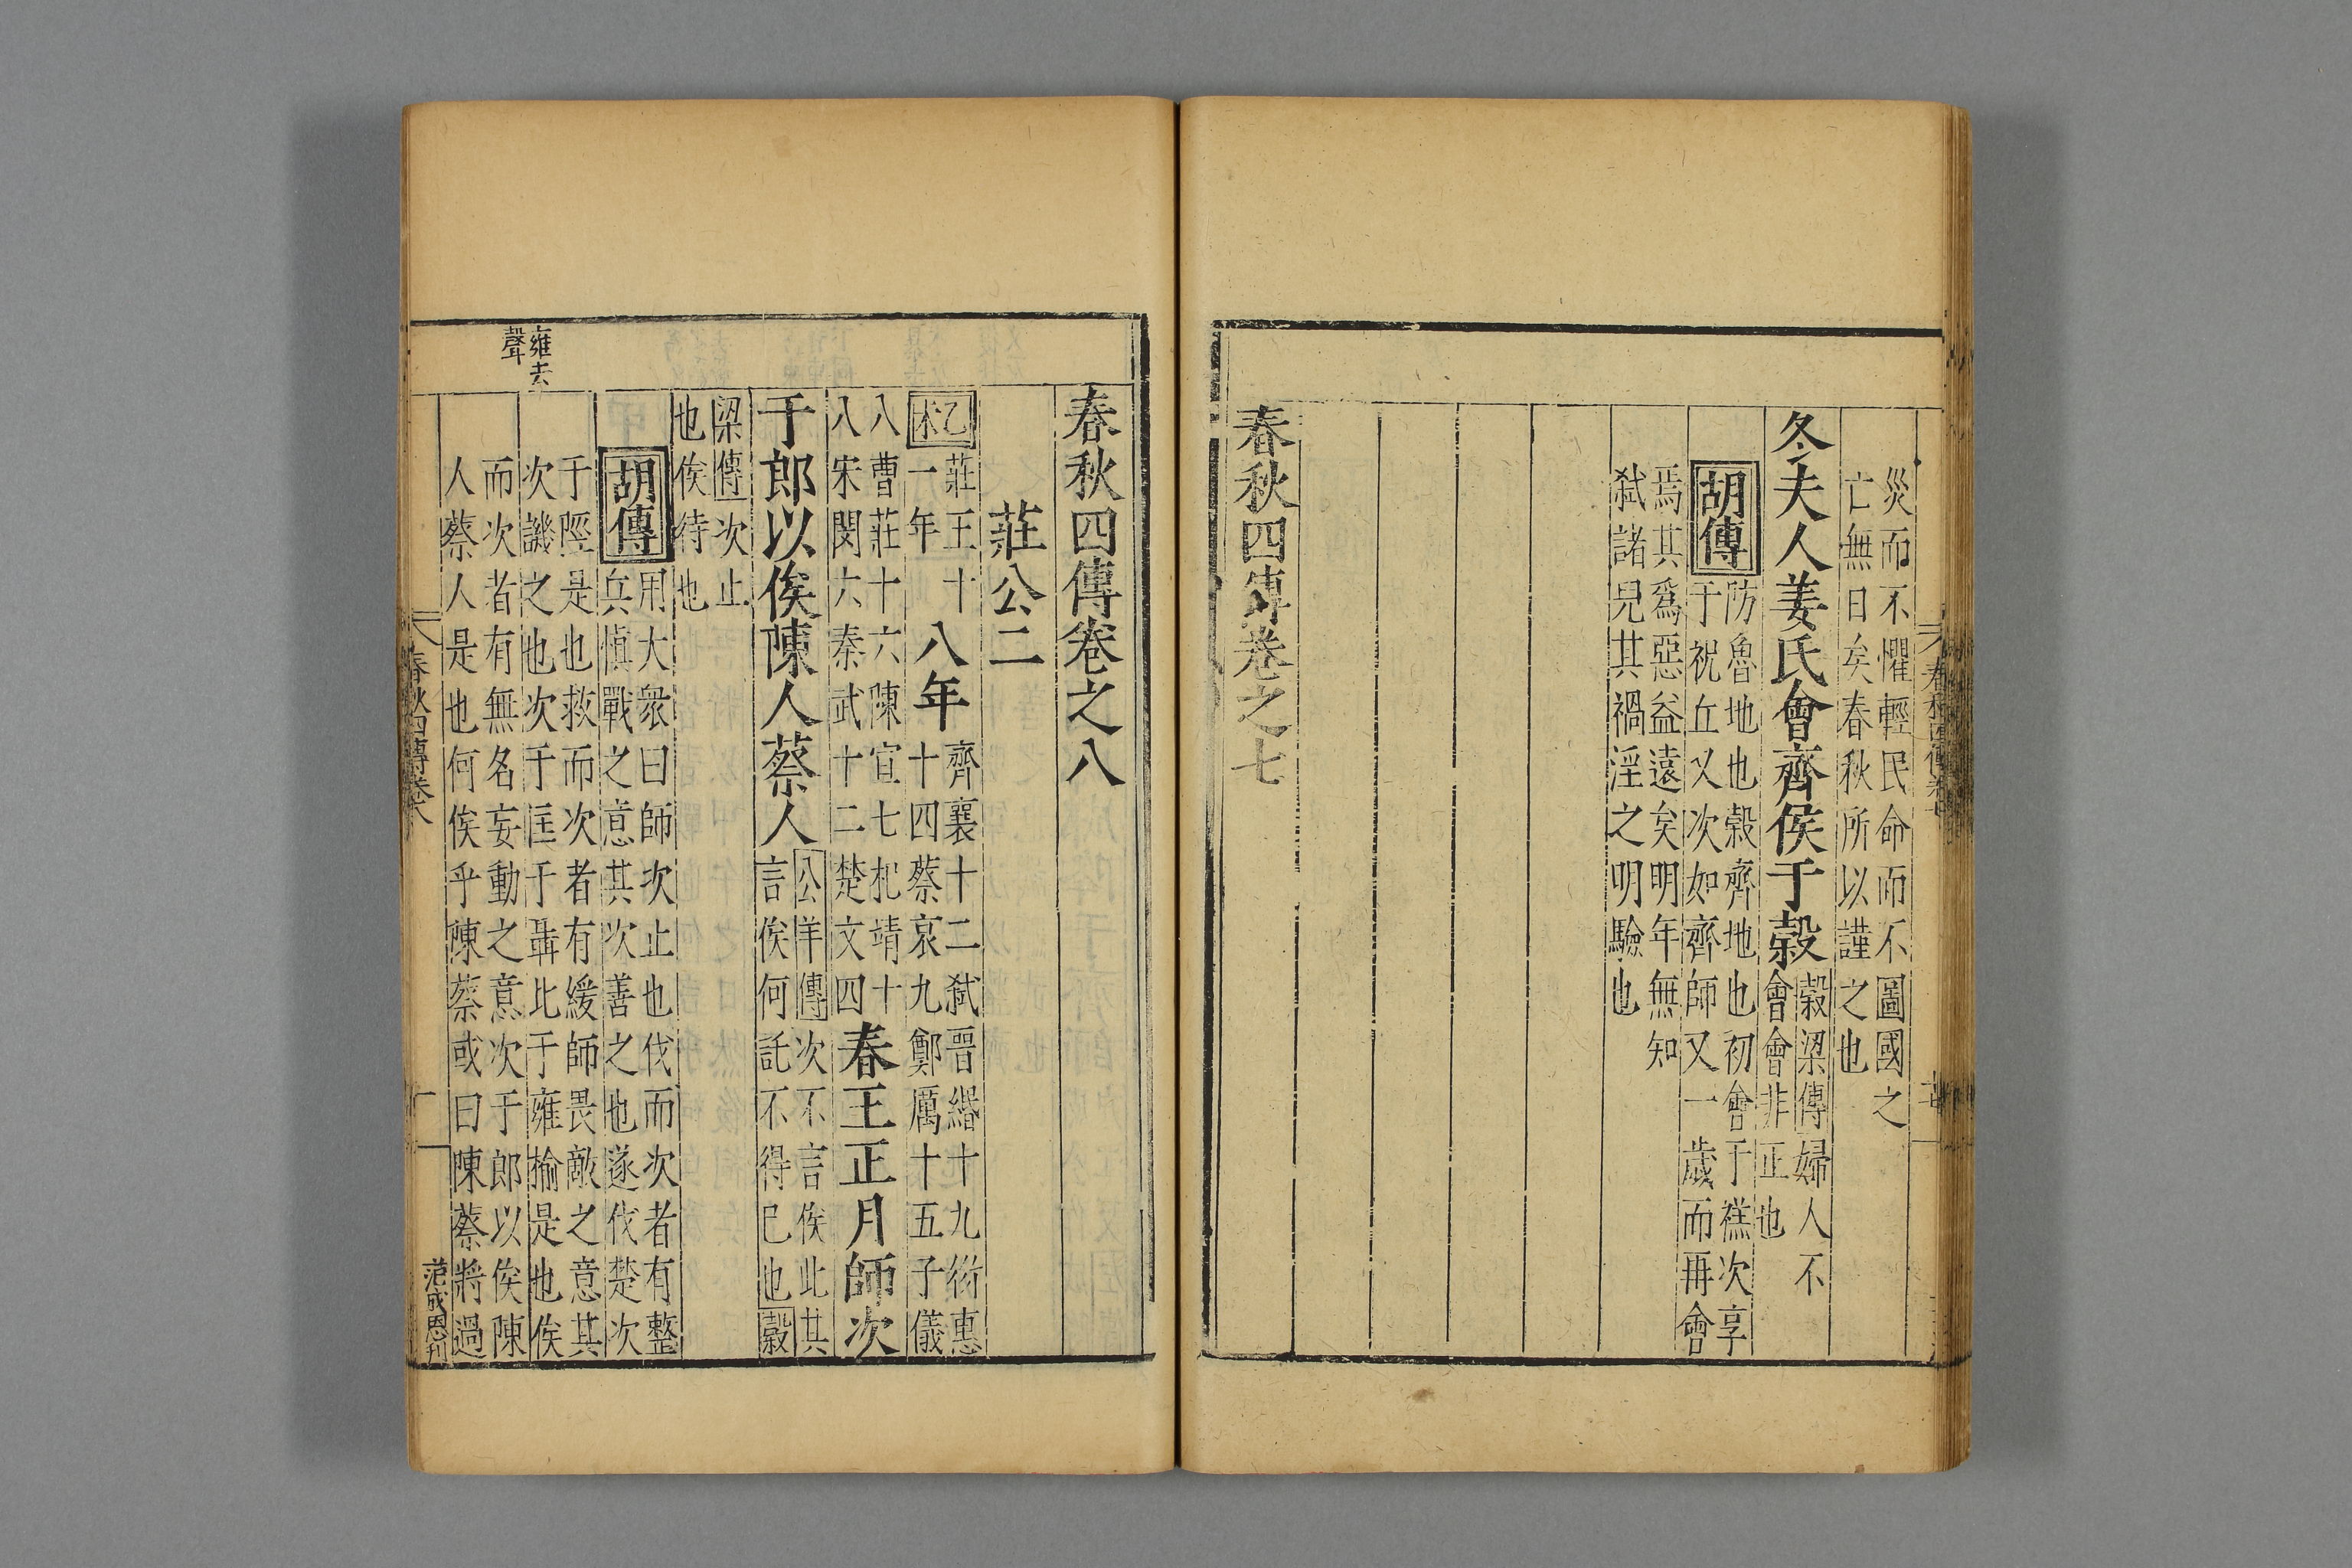 災而不懼輕民命而不圖國之
亡無日矣春秋所以謹之也
冬夫人姜氏會齊侯于穀
穀梁傳婦人不
會會非正也
胡傳
防魯地也穀齊地也初會于禚次享
于祝丘又次如齊師又一歲而再會
焉其爲惡益遠矣明年無知
弑諸兒其禍淫之明驗也
春秋四傳卷之七
春秋四傳卷之八
莊公二
乙未
莊王十
一年
八年
齊襄十二弑晋緡十九衛惠
十四蔡哀九鄭厲十五子儀
八曹莊十六陳宣七杞靖十
八宋閔六秦武十二楚文四
春王正月師次
于郎以俟陳人蔡人
公羊傳次不言俟此其
言俟何託不得已也穀
梁傳次止
也俟待也
胡傳
用大衆曰師次止也伐而次者有整
兵慎戰之意其次善之也遂伐楚次
于陘是也救而次者有緩師畏敵之意其
次譏之也次于匡于聶北于雍榆是也俟
而次者有無名妄動之意次于郎以俟陳
人蔡人是也何俟乎陳蔡或曰陳蔡將過
雍去
聲
春秋四傳卷八
一
范成恩刊